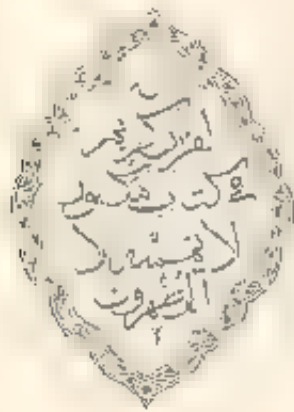 لقرآن كريم
في كتب مكنون
لا يمسه الا
المطهرون